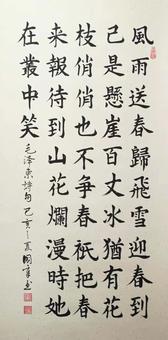 風雨送春歸飛雪迎春到
己是懸崖百丈冰猶有花
枝俏俏也不爭春祇把春
来報待到山花爛漫時她
在叢中笑 毛泽東詩句 己亥之夏